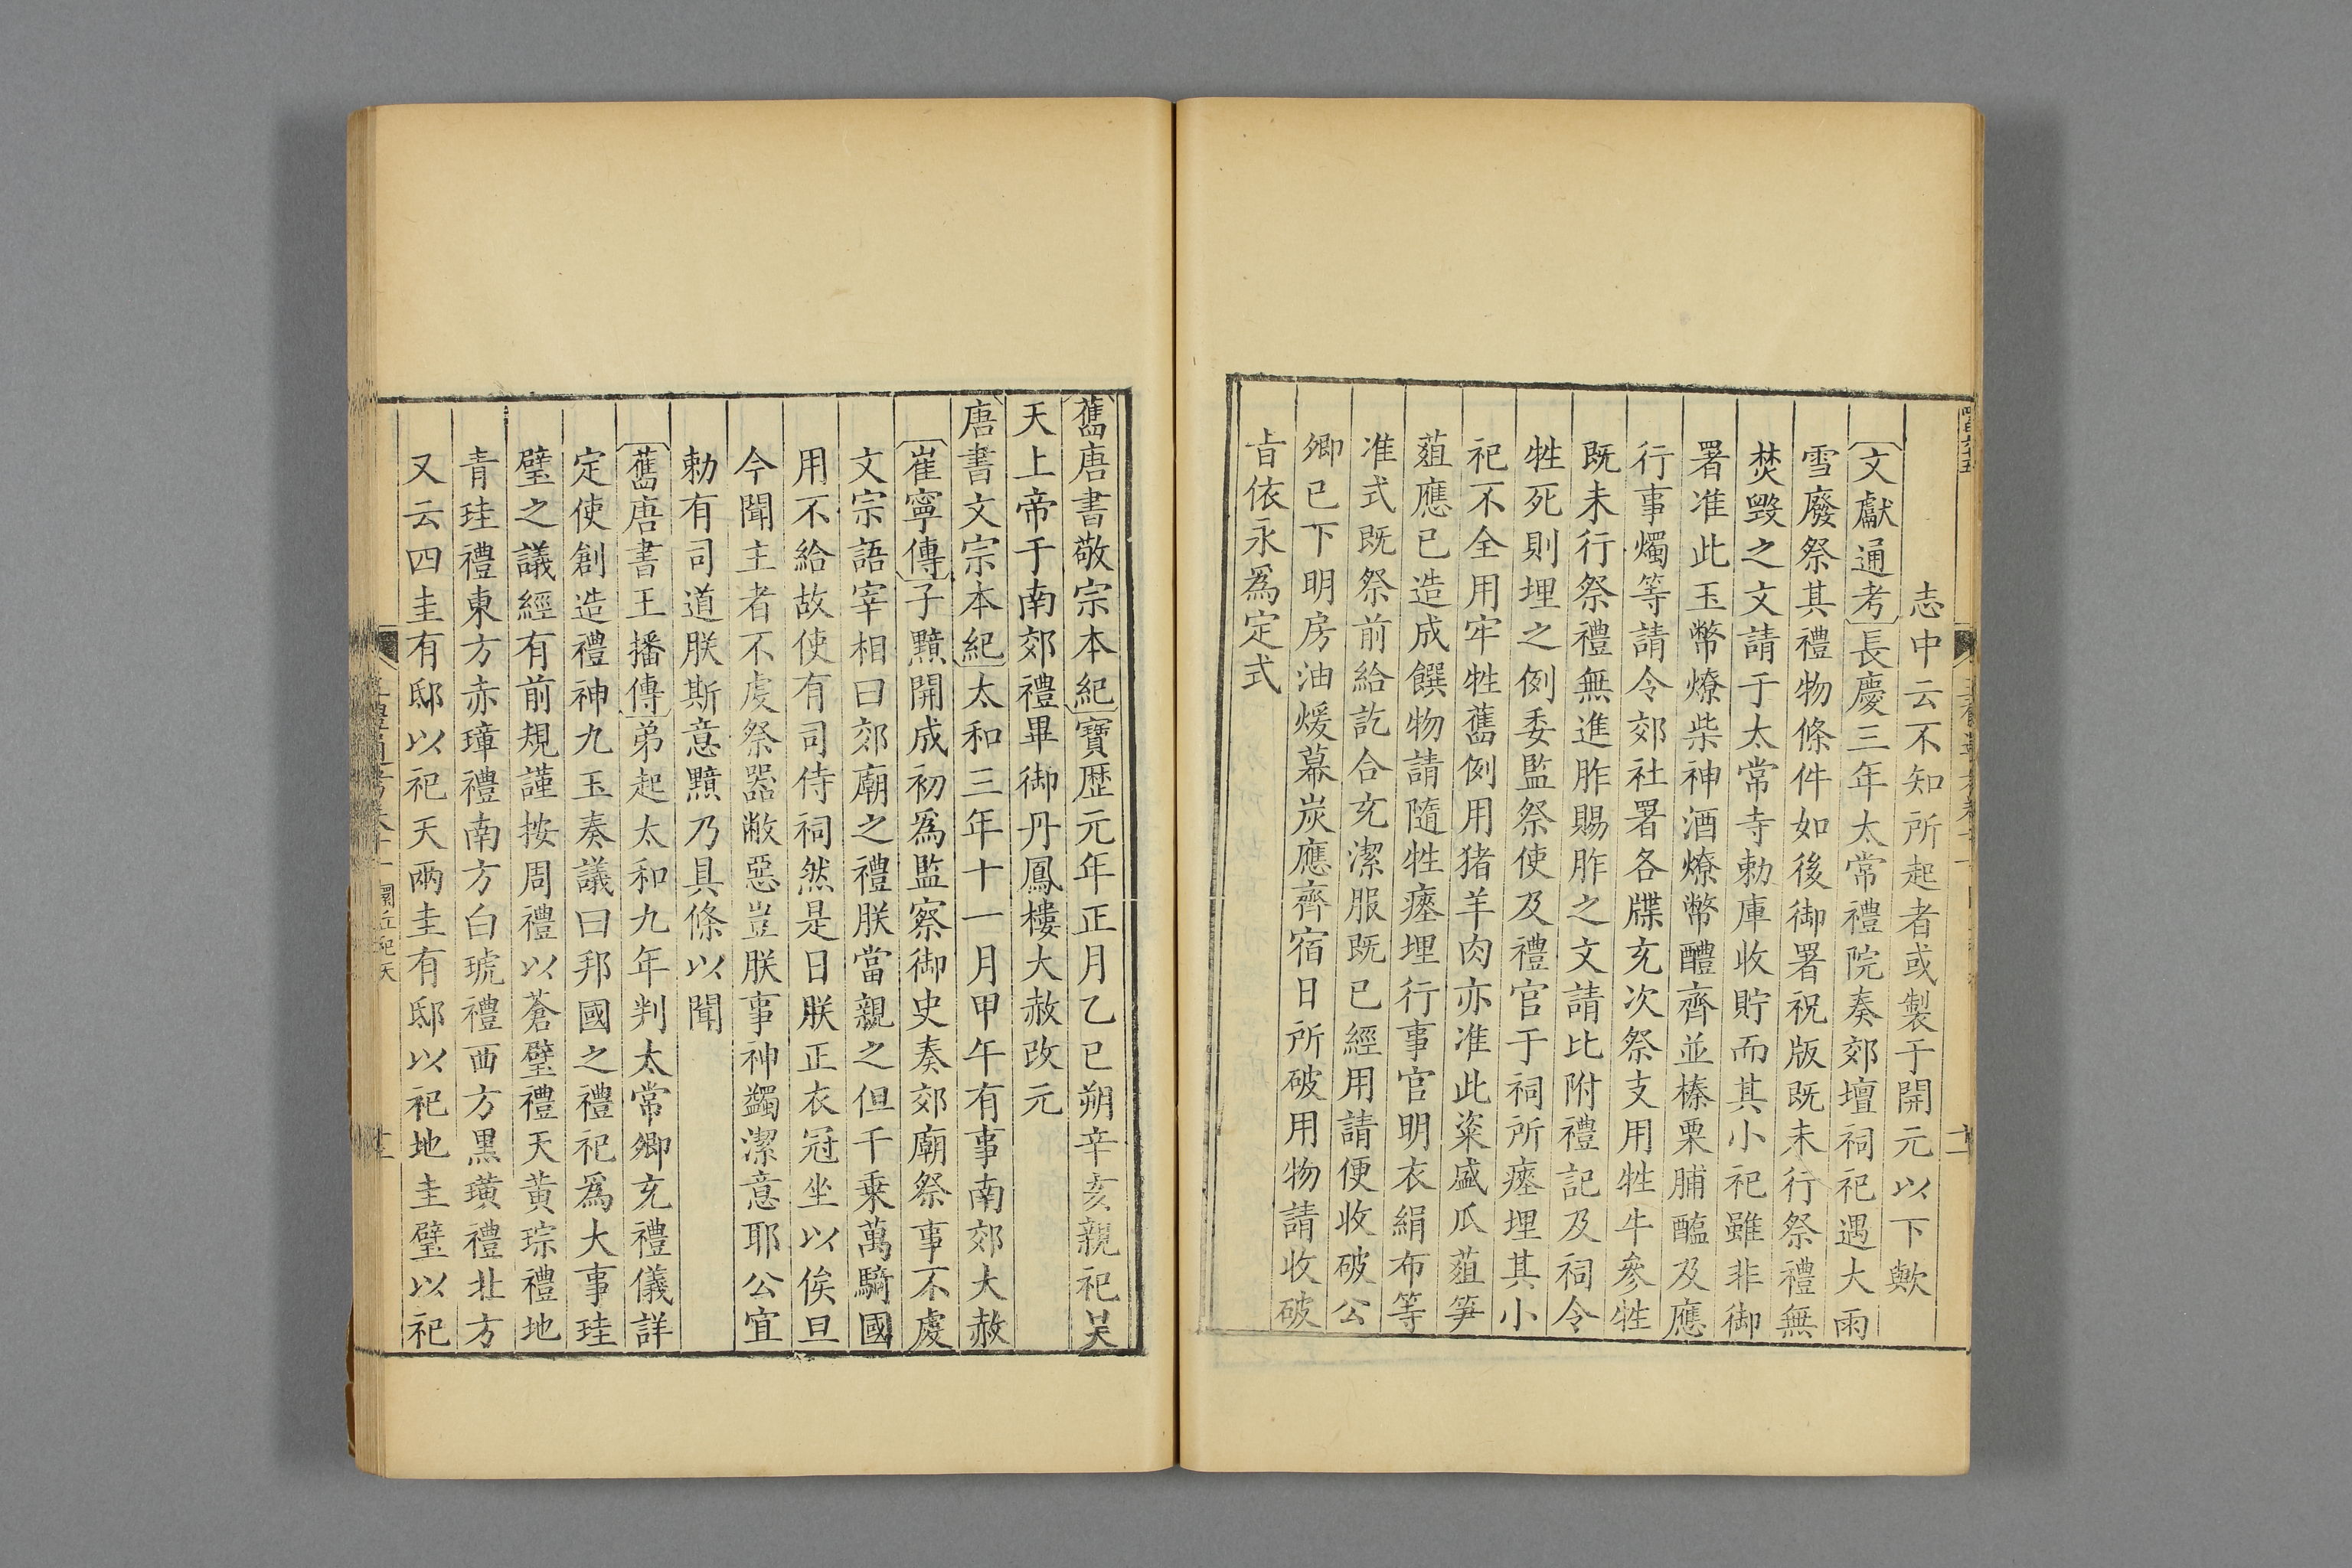 志中云不知所起者或製于開元以下歟
〔文獻通考〕長慶三年太常禮院奏郊壇祠祀遇大雨
雪廢祭其禮物條件如後御署祝版既未行祭禮無
焚毁之文請于太常寺勅庫收貯而其小祀雖非御
署准此玉幣燎柴神酒燎幣醴齊並榛栗脯醢及應
行事燭等請令郊社署各牒充次祭支用牲牛參牲
既未行祭禮無進胙賜胙之文請比附禮記及祠令
牲死則埋之例委監祭使及禮官于祠所瘞埋其小
祀不全用牢牲舊例用猪羊肉亦准此粢盛瓜菹笋
菹應已造成饌物請隨牲瘞埋行事官明衣絹布等
准式既祭前給訖合充潔服既已經用請便收破公
卿已下明房油煖幕炭應齊宿日所破用物請收破
旨依永爲定式
〔舊唐書敬宗本紀〕寶歷元年正月乙巳朔辛亥親祀昊
天上帝于南郊禮畢御丹鳳樓大赦改元
唐書文宗本紀〕太和三年十一月甲午有事南郊大赦
〔崔寧傳〕子黯開成初爲監察御史奏郊廟祭事不虔
文宗語宰相曰郊廟之禮朕當親之但千乗萬騎國
用不給故使有司侍祠然是日朕正衣冠坐以俟旦
今聞主者不虔祭器敝惡豈朕事神蠲潔意耶公宜
勅有司道朕斯意黯乃具條以聞
〔舊唐書王播傳〕弟起太和九年判太常卿充禮儀詳
定使創造禮神九玉奏議曰邦國之禮祀爲大事珪
璧之議經有前規謹按周禮以蒼璧禮天黃琮禮地
青珪禮東方赤璋禮南方白琥禮西方黑璜禮北方
又云四圭有邸以祀天兩圭有邸以祀地圭璧以祀
圜丘祀天